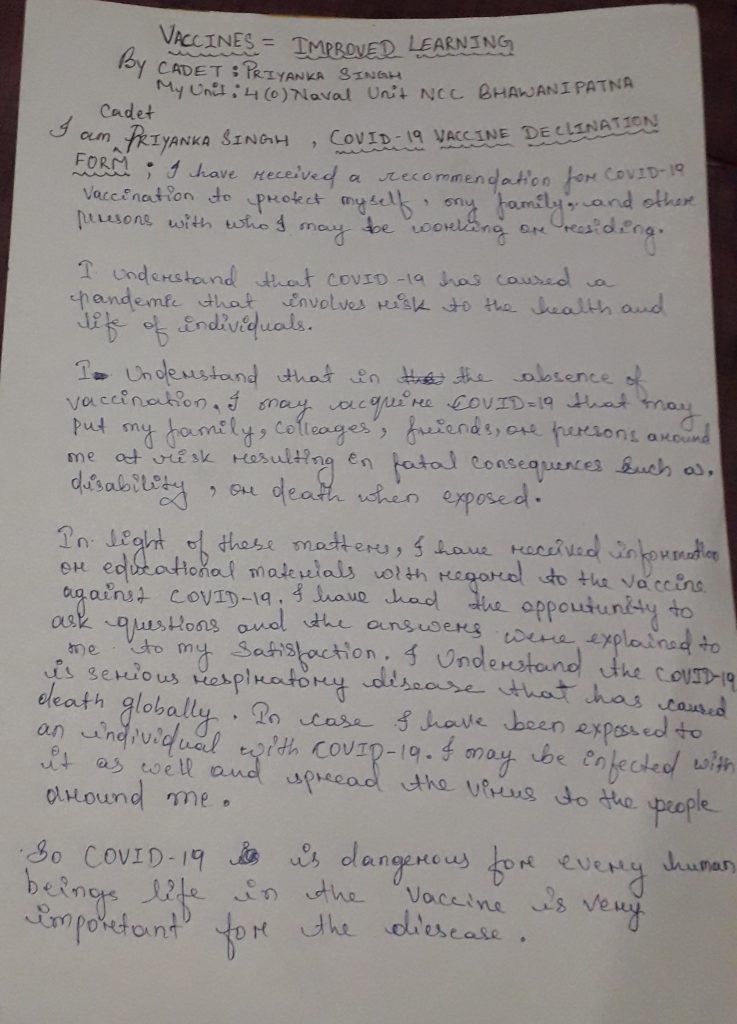 VACCINES = IMPROVED LEARNING
By CADET : PRIYANKA SINGH
My Unit : 4 (O) Naval Unit NCC BHAWANIPATNA
Cadet
I am PRIYANKA SINGH , COVID-19 VACCINE DECLINATION
FORM ; I have received a recommendation for COVID-19
vaccination to protect myself , my family, and other
persons with who I may be working or residing.
I understand that COVID-19 has caused a
pandemic that involves risk to the health and
life of individuals.
I Understand that in the absence of
vaccination, I may acquire COVID=19 that may
put my family, Colleages, friends, or persons around
me at risk resulting in fatal consequences Such as,
disability , or death when exposed.
In light of these matters, I have received information
or educational materials with regard to the vaccine
against COVID-19. I have had the opportunity to
ask questions and the answers were explained to
me to my Satisfaction. I Understand the COVID-19
is serious respiratory disease that has caused
death globally. In case I have been exposed to
an individual with COVID-19. I may be infected with
it as well and spread the virus to the people
around me.
So COVID-19 is dangerous for every human
beings life in the Vaccine is very
important for the diesease.